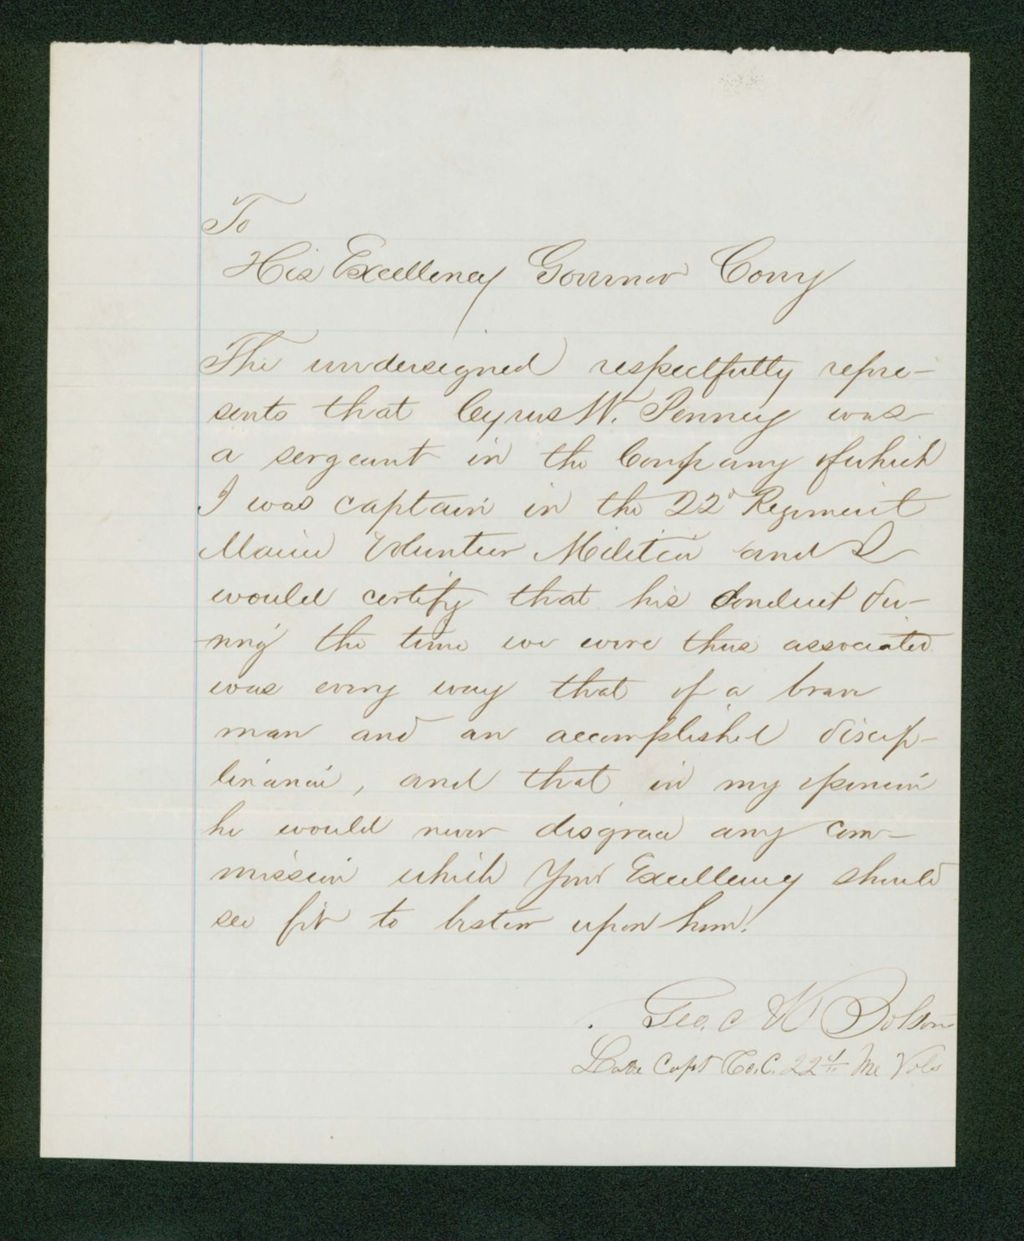 To
His Excellency Governor Cony
The undersigned respectfully repre-
sents that Cyrus W. Penney was
a sergeant in the Company of which
I was captain in the 22d Regiment
Maine Volunteer Militia and I
would certify that his Conduct du-
ring the time we were thus associated
was every way that of a brave
man and an accomplished discip-
linarian, and that in my opinion
he would never disgrace any com-
mission which Your Excellency should
see fit to bestow upon him.
Geo. W
Late Capt Co. C. 22d Me Vols